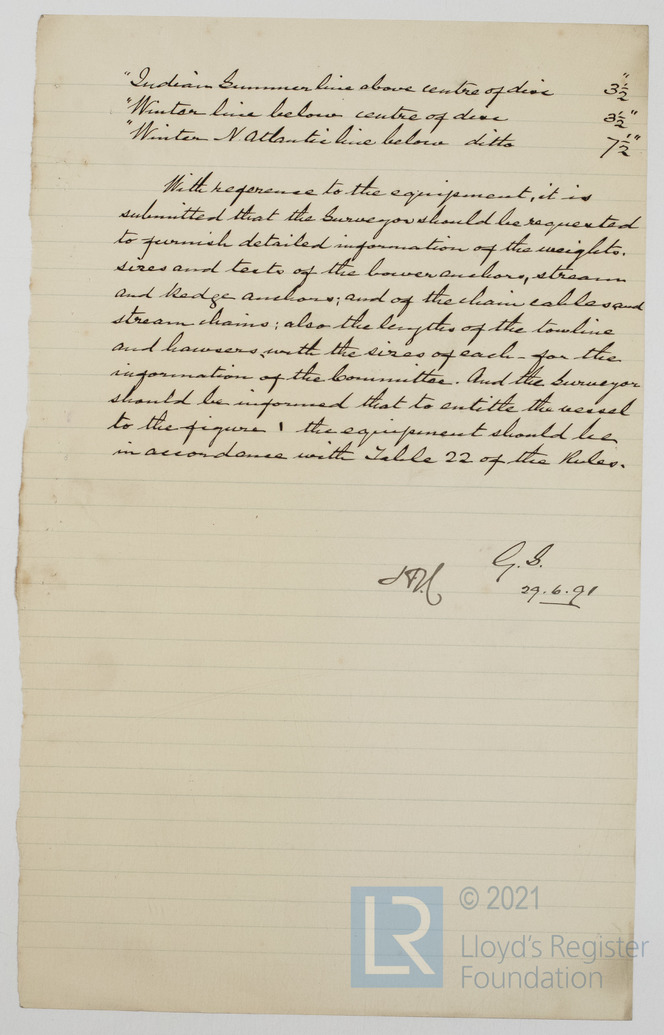 "Indian Summer line above centre of disc 3½"
"Winter line below centre of disc 3½"
"Winter N Atlantic line below ditto 7½"
With reference to the equipment, it is
submitted that the Surveyor should be requested
to furnish detailed information of the weights,
sizes and tests of the bower anchors, stream
and kedge anchors; and of the chain cables and
stream chains; also the lengths of the towline
and hawsers, with the sizes of each - for the
information of the Committee. And the Surveyor
should be informed that to entitle the vessel
to the figure 1 the equipment should be
in accordance with Table 22 of the Rules.
G.S.
29.6.91
LR
© 2021
Lloyd's Register
Foundation